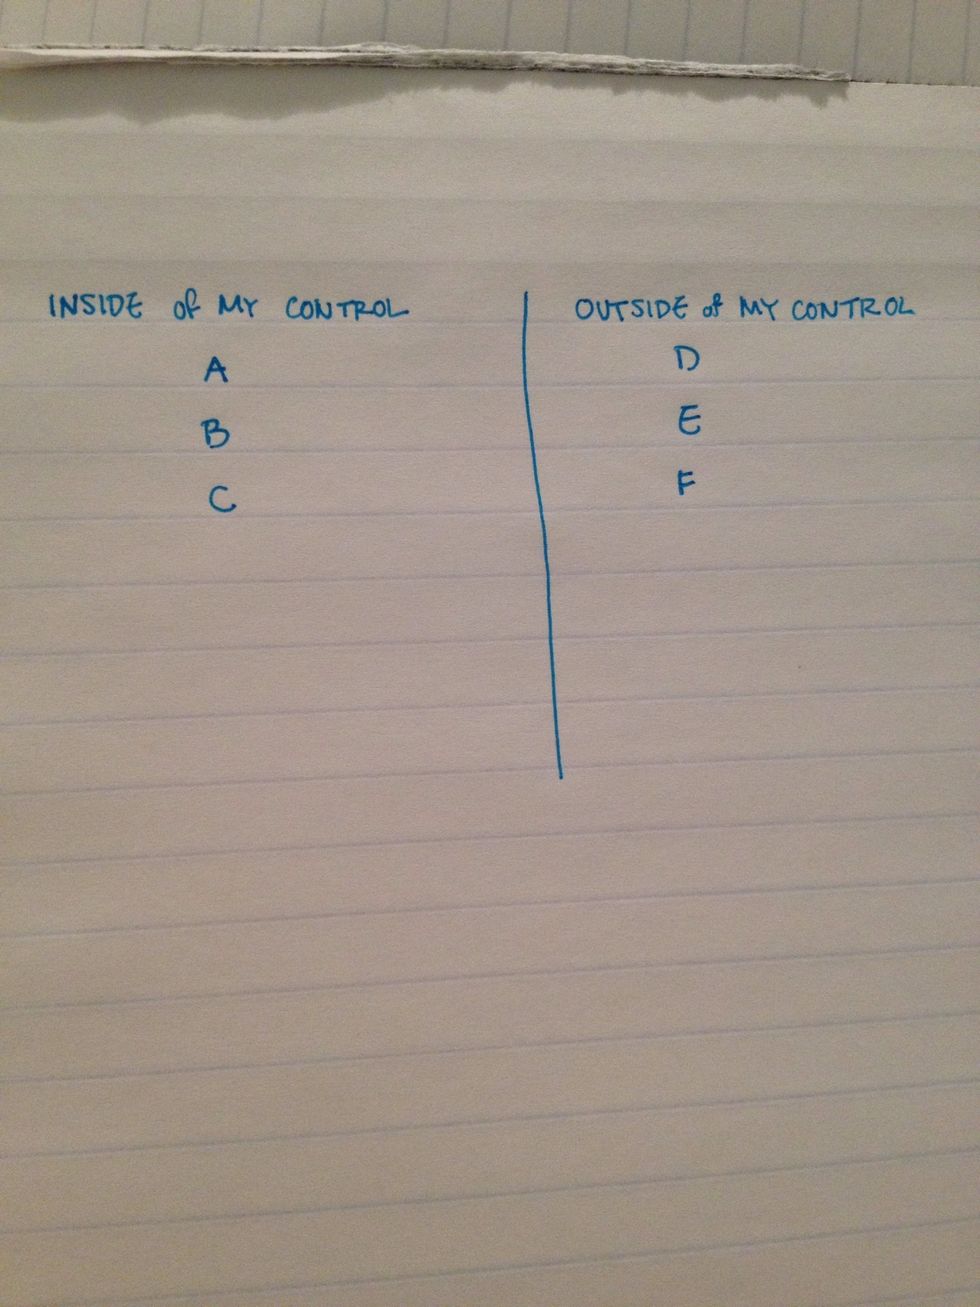 INSIDE of MY CONTROL
A
B
C
OUTSIDE of MY CONTROL
D
E
F